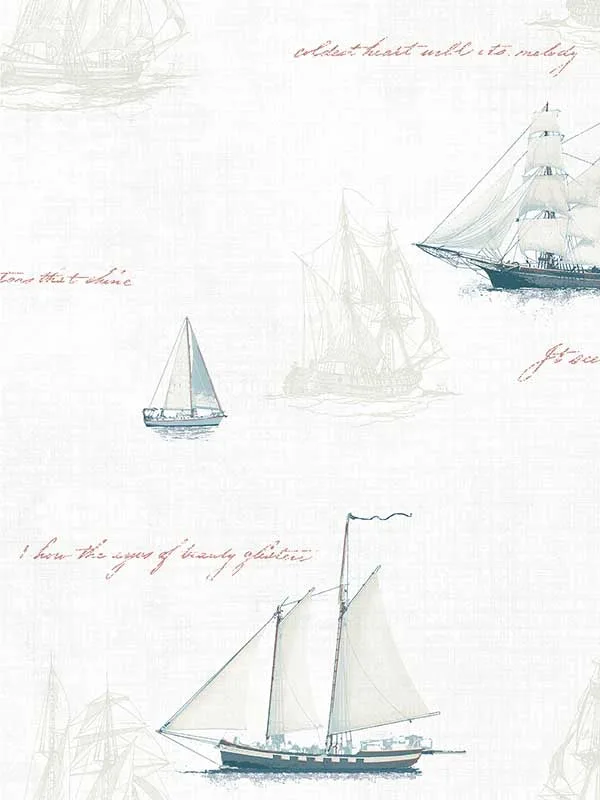 coldest heart will its melody
tons that shine
It's oce
! how the eyes of beauty glisten